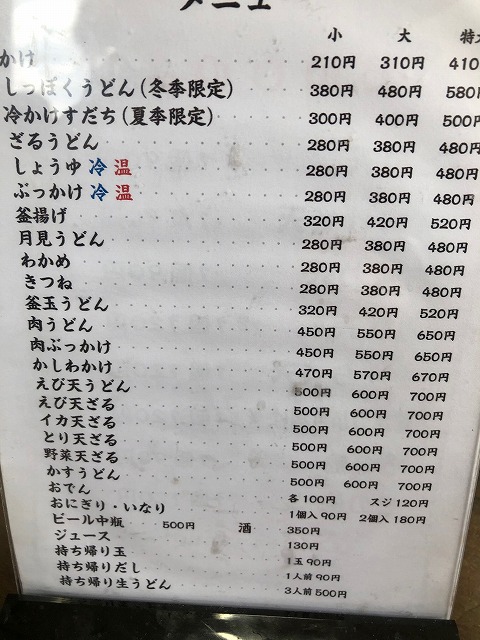 メニュー
小 大 特
かけ 210円 310円 410
しっぽくうどん(冬季限定) 380円 480円 580円
冷かけすだち(夏季限定) 300円 400円 500円
ざるうどん 280円 380円 480円
しょうゆ 冷 温 280円 380円 480円
ぶっかけ 冷 温 280円 380円 480円
釜揚げ 320円 420円 520円
月見うどん 280円 380円 480円
わかめ 280円 380円 480円
きつね 280円 380円 480円
釜玉うどん 320円 420円 520円
肉うどん 450円 550円 650円
肉ぶっかけ 450円 550円 650円
かしわかけ 470円 570円 670円
えび天うどん 500円 600円 700円
えび天ざる 500円 600円 700円
イカ天ざる 500円 600円 700円
とり天ざる 500円 600円 700円
野菜天ざる 500円 600円 700円
かすうどん 500円 600円 700円
おでん 各100円 スジ120円
おにぎり・いなり 1個入90円 2個入180円
ビール中瓶 500円 酒 350円
ジュース 130円
持ち帰り玉 1玉90円
持ち帰りだし 1人前90円
持ち帰り生うどん 3人前500円